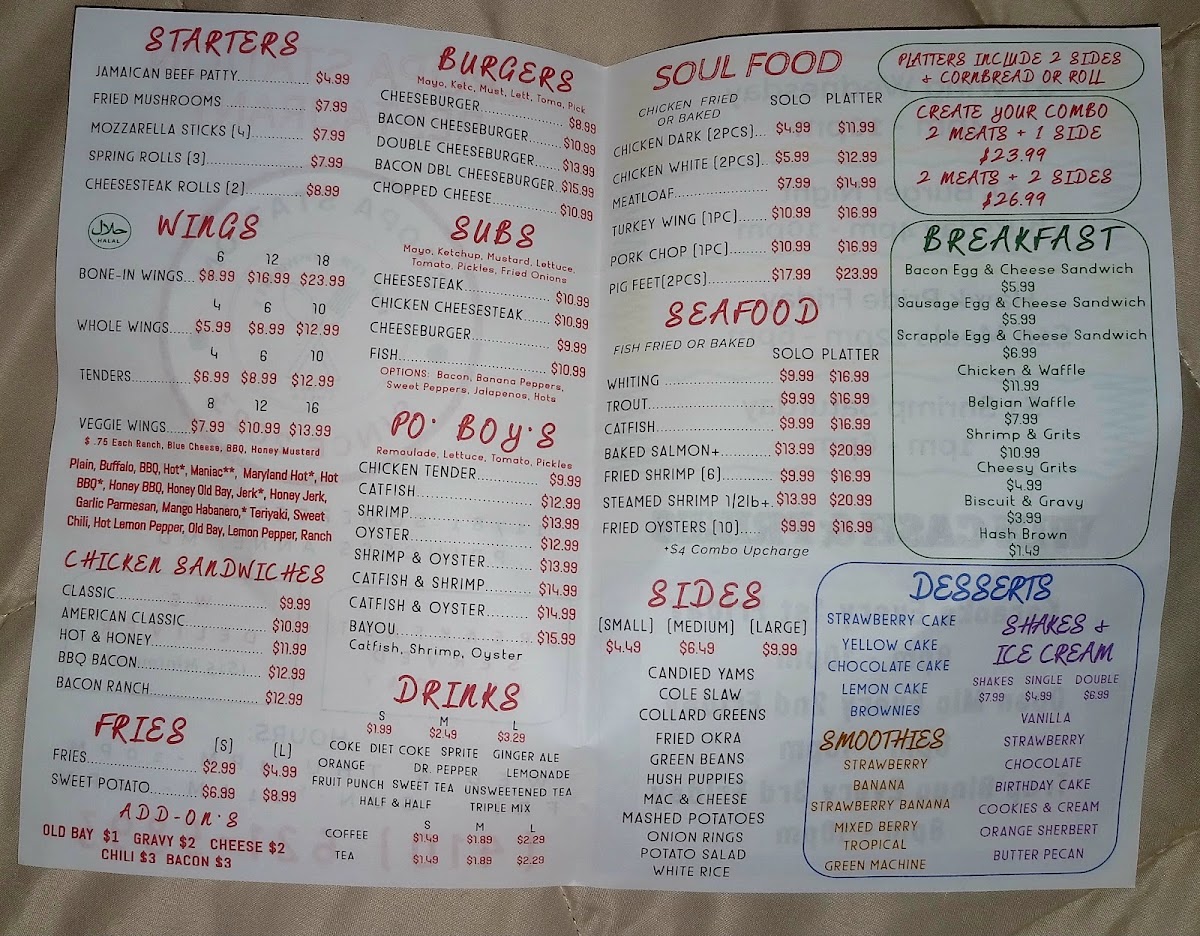 STARTERS
JAMAICAN BEEF PATTY $4.99
FRIED MUSHROOMS $7.99
MOZZARELLA STICKS (4) $7.99
SPRING ROLLS (3) $7.99
CHEESESTEAK ROLLS (2) $8.99
حلال
HALAL
WINGS
6 12 18
BONE-IN WINGS $8.99 $16.99 $23.99
4 6 10
WHOLE WINGS $5.99 $8.99 $12.99
4 6 10
TENDERS $6.99 $8.99 $12.99
8 12 16
VEGGIE WINGS $7.99 $10.99 $13.99
$ .75 Each Ranch, Blue Cheese, BBQ, Honey Mustard
Plain, Buffalo, BBQ, Hot*, Maniac**, Maryland Hot*, Hot
BBQ*, Honey BBQ, Honey Old Bay, Jerk*, Honey Jerk,
Garlic Parmesan, Mango Habanero,* Teriyaki, Sweet
Chili, Hot Lemon Pepper, Old Bay, Lemon Pepper, Ranch
CHICKEN SANDWICHES
CLASSIC $9.99
AMERICAN CLASSIC $10.99
HOT & HONEY $11.99
BBQ BACON $12.99
BACON RANCH $12.99
FRIES
(S) (L)
FRIES $2.99 $4.99
SWEET POTATO $6.99 $8.99
ADD-ON'S
OLD BAY $1 GRAVY $2 CHEESE $2
CHILI $3 BACON $3
BURGERS
Mayo, Ketc, Must, Lett, Toma, Pick
CHEESEBURGER $8.99
BACON CHEESEBURGER $10.99
DOUBLE CHEESEBURGER $13.99
BACON DBL CHEESEBURGER $15.99
CHOPPED CHEESE $10.99
SUBS
Mayo, Ketchup, Mustard, Lettuce,
Tomato, Pickles, Fried Onions
CHEESESTEAK $10.99
CHICKEN CHEESESTEAK $10.99
CHEESEBURGER $9.99
FISH $10.99
OPTIONS: Bacon, Banana Peppers,
Sweet Peppers, Jalapenos, Hots
PO' BOY'S
Remoulade, Lettuce, Tomato, Pickles
CHICKEN TENDER $9.99
CATFISH $12.99
SHRIMP $13.99
OYSTER $12.99
SHRIMP & OYSTER $13.99
CATFISH & SHRIMP $14.99
CATFISH & OYSTER $14.99
BAYOU $15.99
Catfish, Shrimp, Oyster
DRINKS
S M L
$1.99 $2.49 $3.29
COKE DIET COKE SPRITE GINGER ALE
ORANGE DR. PEPPER LEMONADE
FRUIT PUNCH SWEET TEA UNSWEETENED TEA
HALF & HALF TRIPLE MIX
S M L
COFFEE $1.49 $1.89 $2.29
TEA $1.49 $1.89 $2.29
SOUL FOOD
CHICKEN FRIED
OR BAKED
SOLO PLATTER
CHICKEN DARK (2PCS) $4.99 $11.99
CHICKEN WHITE (2PCS) $5.99 $12.99
MEATLOAF $7.99 $14.99
TURKEY WING (1PC) $10.99 $16.99
PORK CHOP (1PC) $10.99 $16.99
PIG FEET(2PCS) $17.99 $23.99
SEAFOOD
FISH FRIED OR BAKED
SOLO PLATTER
WHITING $9.99 $16.99
TROUT $9.99 $16.99
CATFISH $9.99 $16.99
BAKED SALMON+ $13.99 $20.99
FRIED SHRIMP (6) $9.99 $16.99
STEAMED SHRIMP 1/2lb+ $13.99 $20.99
FRIED OYSTERS (10) $9.99 $16.99
+$4 Combo Upcharge
SIDES
(SMALL) (MEDIUM) (LARGE)
$4.49 $6.49 $9.99
CANDIED YAMS
COLE SLAW
COLLARD GREENS
FRIED OKRA
GREEN BEANS
HUSH PUPPIES
MAC & CHEESE
MASHED POTATOES
ONION RINGS
POTATO SALAD
WHITE RICE
PLATTERS INCLUDE 2 SIDES
+ CORNBREAD OR ROLL
CREATE YOUR COMBO
2 MEATS + 1 SIDE
$23.99
2 MEATS + 2 SIDES
$26.99
BREAKFAST
Bacon Egg & Cheese Sandwich
$5.99
Sausage Egg & Cheese Sandwich
$5.99
Scrapple Egg & Cheese Sandwich
$6.99
Chicken & Waffle
$11.99
Belgian Waffle
$7.99
Shrimp & Grits
$10.99
Cheesy Grits
$4.99
Biscuit & Gravy
$3.99
Hash Brown
$1.49
DESSERTS
STRAWBERRY CAKE
YELLOW CAKE
CHOCOLATE CAKE
LEMON CAKE
BROWNIES
SMOOTHIES
STRAWBERRY
BANANA
STRAWBERRY BANANA
MIXED BERRY
TROPICAL
GREEN MACHINE
SHAKES +
ICE CREAM
SHAKES SINGLE DOUBLE
$7.99 $4.99 $6.99
VANILLA
STRAWBERRY
CHOCOLATE
BIRTHDAY CAKE
COOKIES & CREAM
ORANGE SHERBERT
BUTTER PECAN